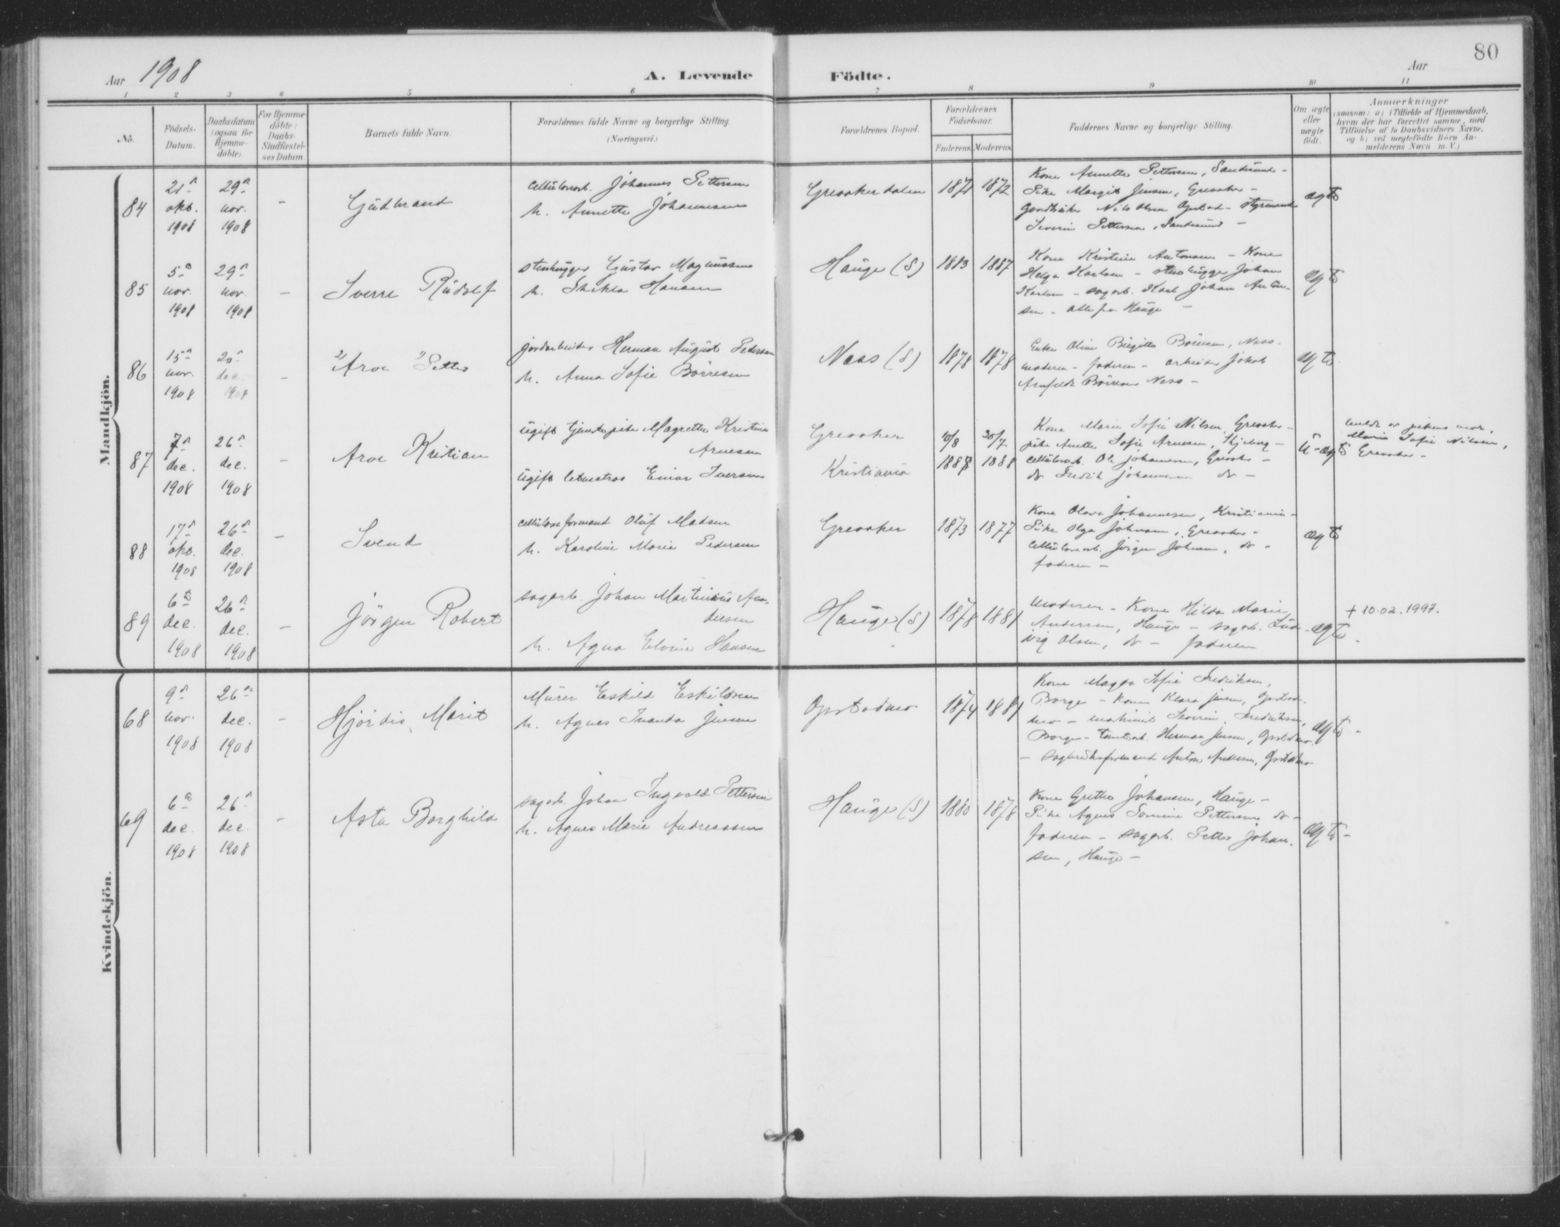 Aar 1908
A. Levende Födte.
80
Aar
1 2 3 4 5 6 7 8 9 10 11
No.
Födsels-Datum.
Daabsdatum (ogsaa for Hjemmedöbte)
For Hjemmedöbte: Daabs-Stadfæstelses Datum
Barnets fulde Navn.
Forældrenes fulde Navne og borgerlige Stilling
(Næringsvei)
Forældrenes Bopæl.
Forældrenes Födselsaar.
Faderens. Moderens.
Faddernes Navne og borgerlige Stilling.
Om ægte eller uægte födt.
Anmærkninger
(saasom: a) i Tilfælde af Hjemmedaab, hvem der har forrettet samme, med Tilföielse af to Daabsvidners Navne, og b) ved uægtefödte Börn Anmelderens Navn m. V.)
Mandkjön.
84
21de okt. 1908
29de nov. 1908
-
Gudbrand
Johannes Pettersen
h. Annette Johannesen
Greaakerdalen
1871 1872
Kone Annette Pettersen, Sandesund -
Pike Margit Jensen, Greaaker -
Severin Pettersen, Sandesund -
ægte
85
5te nov. 1908
29de nov. 1908
-
Sverre Rudolf
stenhugger Gustav Magnussen
h. Hansen
Hauge (S)
1883 1887
Kone Kristine Antonsen - Kone
Helga Karlsen - stenhugger Johan
Karlsen - sagarb. Karl Johan Anton-
sen - alle fra Hauge -
ægte
86
15de nov. 1908
20de dec. 1908
-
Arve Petter
jordarbeider Herman August Pedersen
h. Anna Sofie Börresen
Næs (S)
1878 1878
Enke Oline Birgitte Börresen, Næss -
moderen - faderen - arbeider Jakob
Arnfeldt Börresen Næss -
ægte
87
7de dec. 1908
26de dec. 1908
Arve Kristian
ugift tjenestepike Magrethe Kristine
Arnesen
ugift Einar Iversen
Greaaker
Kristiania
1888 1888
Kone Marie Sofie Nilsen, Greaaker -
pike Anette Sofie Arnesen,
cellulosearb. Ole Johannesen, Greaaker -
do Fredrik Johannesen do -
u-ægte
Marie Sofie Nilsen,
Greaaker -
88
17de okt. 1908
26de dec. 1908
-
Svend
celluloseformand Oluf Madsen
h. Karoline Marie Pedersen
Greaaker
1873 1877
Kone Olava Johannesen, Kristiania -
Pike Olga Johnsen, Greaaker -
cellulosearb. Jörgen Johnsen, do -
faderen -
ægte
89
6te dec. 1908
26de dec. 1908
-
Jörgen Robert
sagarb. Johan Martinius An-
dersen
h. Agna Elvine Hansen
Hauge (S)
1878 1881
Moderen - Kone Hilda Marie
Andersen, Hauge - sagarb. Lud-
vig Olsen, do - faderen
ægte -
+ 10.02.1997.
Kvindekjön.
68
9de nov. 1908
26de dec. 1908
-
Hjördis Marit
Murer Eskild Eskildsen
h. Agnes Jensen
Opstadmo
1874 1881
Kone Magda Sofie Fredriksen,
Borge - Kone Klara Jensen, Opstad-
mo - maskinist Severin Fredriksen,
Borge - Herman Jensen, Opstadmo
- Anton Andersen, Opstadmo
ægte -
69
6te dec. 1908
26de dec. 1908
-
Asta Borghild
sagarb. Johan Ingvald Pettersen
h. Agnes Marie Andreassen
Hauge (S)
1880 1878
Kone Grethe Johansen, Hauge -
Pike Agnes Pettersen, do -
faderen - sagarb. Petter Johan-
sen, Hauge -
ægte -